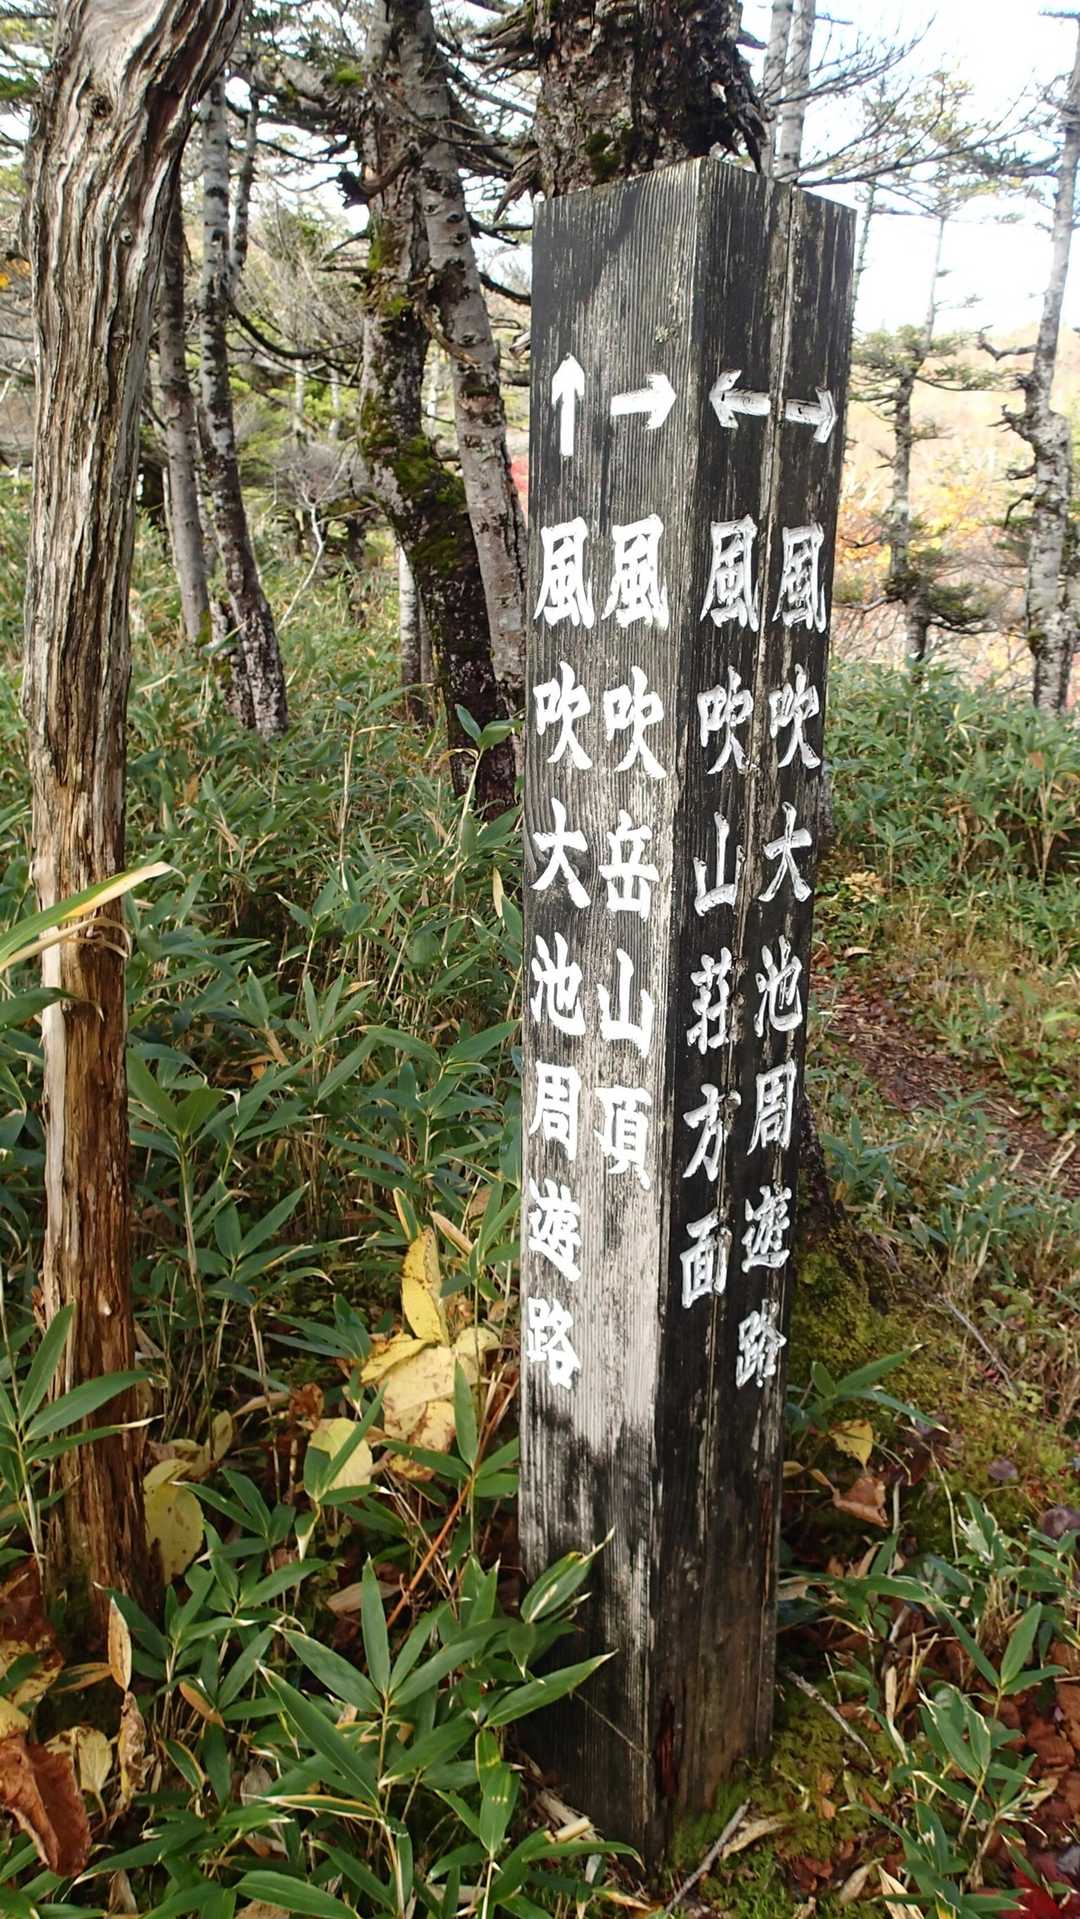 → 風吹岳山頂
↑ 風吹大池周遊路
→ 風吹大池周遊路
← 風吹山荘方面